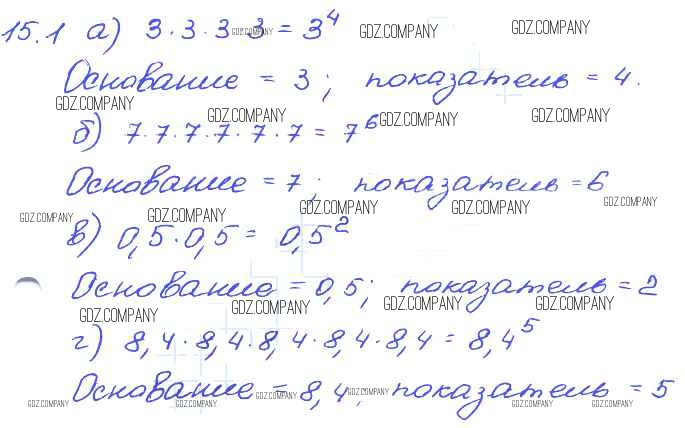 15.1 а) 3·3·3·3 = 3⁴ GDZ.COMPANY GDZ.COMPANY GDZ.COMPANY
Основание = 3; показатель = 4.
GDZ.COMPANY GDZ.COMPANY GDZ.COMPANY GDZ.COMPANY
б) 7·7·7·7·7·7 = 7⁶
Основание = 7; показатель = 6
GDZ.COMPANY GDZ.COMPANY GDZ.COMPANY GDZ.COMPANY GDZ.COMPANY
в) 0,5·0,5 = 0,5²
Основание = 0,5; показатель = 2
GDZ.COMPANY GDZ.COMPANY GDZ.COMPANY GDZ.COMPANY
г) 8,4·8,4·8,4·8,4·8,4 = 8,4⁵
Основание = 8,4; показатель = 5
GDZ.COMPANY GDZ.COMPANY GDZ.COMPANY GDZ.COMPANY GDZ.COMPANY GDZ.COMPANY